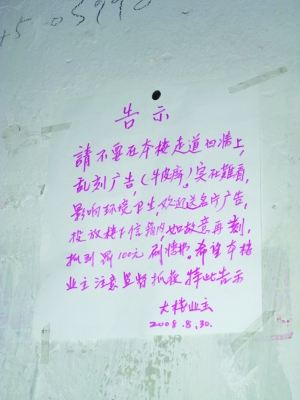 告示
請不要在本楼走道白墻上,
乱刻广告,(牛皮癣)实在難看,
影响环境卫生,欢迎送名片广告,
投放楼下信箱内,如故意再刻,
抓到罚100元刷墙
希望本楼
业主注意监督抓获 特此告示
大楼业主
2008.8.30.